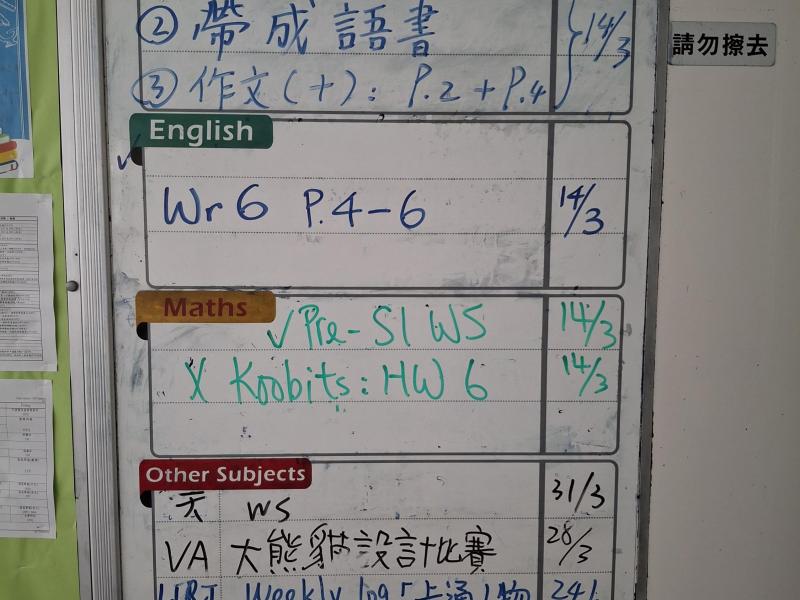 ② 帶成語書
③ 作文(十): P.2 + P.4 } 14/3
請勿擦去
English
Wr 6 P.4-6 14/3
Maths
✓ Pre-S1 WS 14/3
X Koobits: HW 6 14/3
Other Subjects
WS 31/3
VA 大熊貓設計比賽 28/3
Weekly log「卡通」物